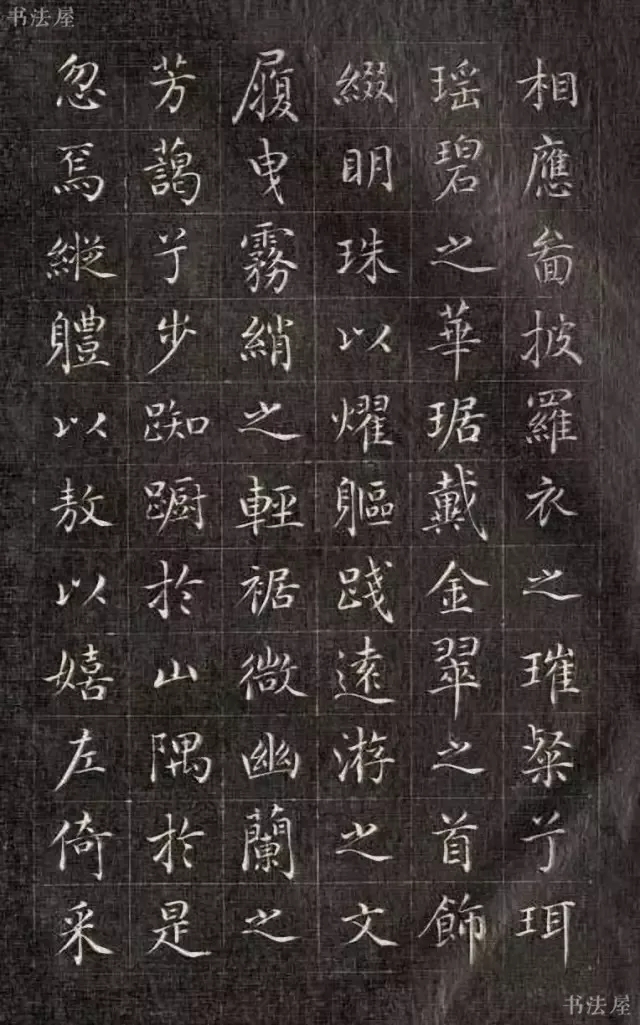 书法屋
相應啚披羅衣之璀粲兮珥
瑶碧之華琚戴金翠之首飾
綴明珠以燿軀踐遠游之文
履曳霧綃之輕裾微幽蘭之
芳藹兮步踟蹰於山隅於是
忽焉縱軆以敖以嬉左倚采
书法屋